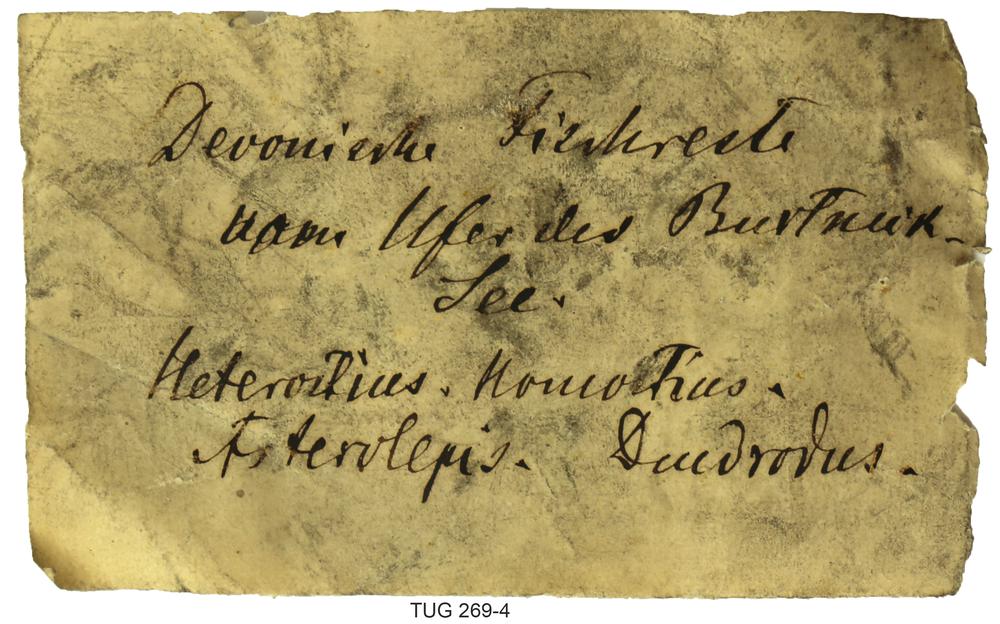 Devonische Fischreste
vom Ufer des Burtneck-
See.
Heterostius. Homostius.
Asterolepis. Dendrodus.
TUG 269-4